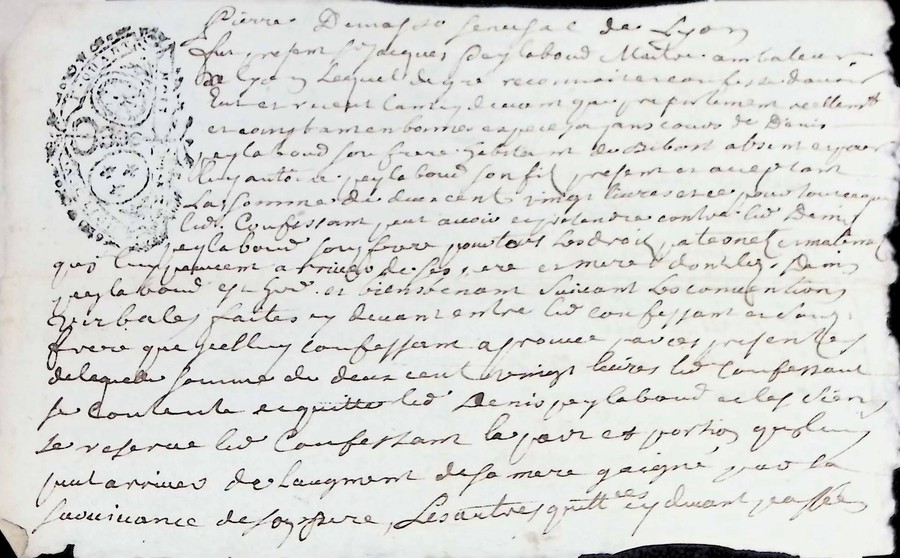 Pierre Demasso Seneschal de Lyon
fut present Sr Jacques peylaboud Maitre ambaleur
de Lyon Lequel de gré reconnait et confesse davoir
Eut et receut tant cy devant que presentement reellemt
et comptant en bonnes espece ayans cours de Denis
peylaboud son frere habitant du absent et pour
luy antoine peylaboud son fils present et acceptant
La Somme de deux cent vingt livres et ce pour tout ce que
led Confessant peut avoir et pretendre contre led Denis
peylaboud son frere pour tous Les droits paternels et maternels
qui luy peuvent arriver de ses pere et mere dont led Denis
peylaboud est et bienstenant Suivant Les conventions
verbales faites cy devant entre led confessant et Son
frere que icelluy confessant aprouve par ces presentes
de laquelle somme de deux cent vingt livres led Confessant
se contente et quitte led Denis peylaboud et les Siens
se reserve led Confessant la part et portion quy luy
peut arriver de Laugment de sa mere gaigné par la
survivance de son pere, Les autres quittces cy devant passées